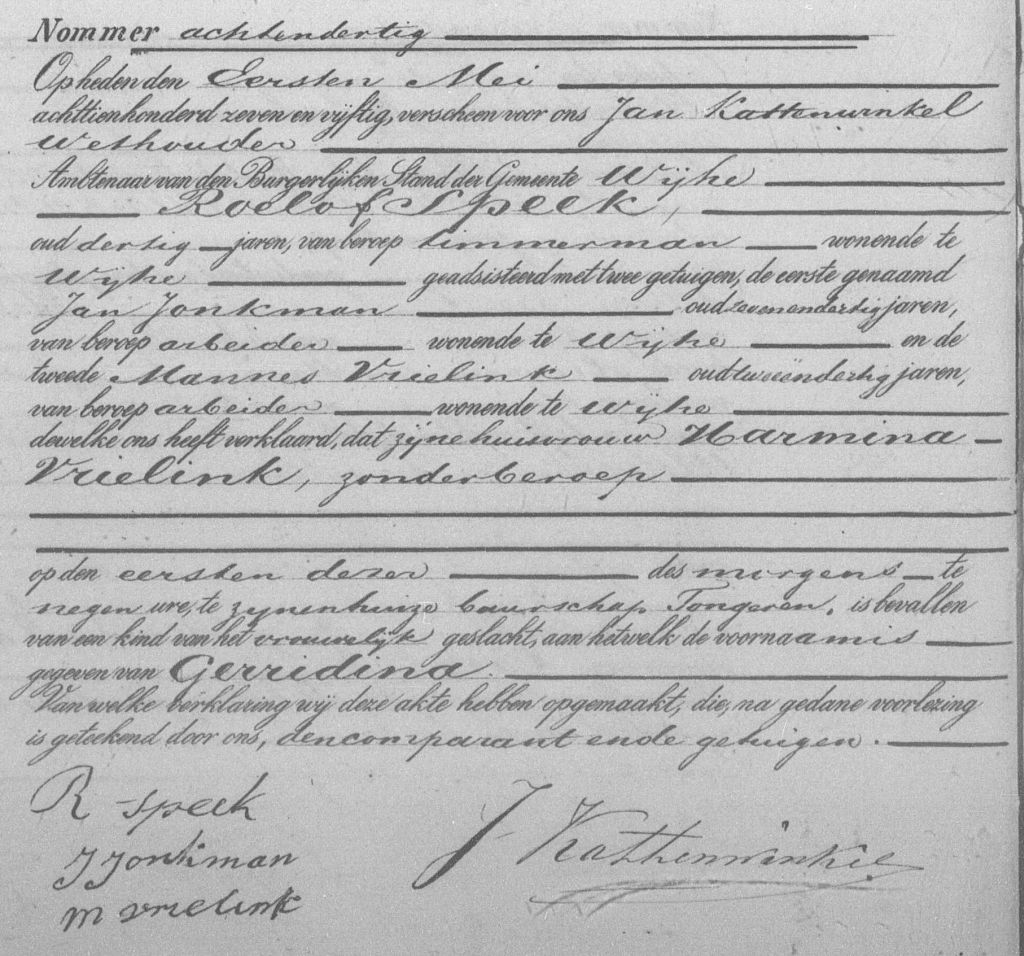 Nommer achtendertig
Op heden den Eersten Mei
achttienhonderd zeven en vijftig, verscheen voor ons Jan Kattenwinkel
Wethouder
Ambtenaar van den Burgerlijken Stand der Gemeente Wijhe
Roelof Speek,
oud dertig jaren, van beroep timmerman wonende te
Wijhe geadsisteerd met twee getuigen, de eerste genaamd
Jan Jonkman oud zevenendertig jaren,
van beroep arbeider wonende te Wijhe en de
tweede Mannes Vrielink oud tweeëndertig jaren,
van beroep arbeider wonende te Wijhe
dewelke ons heeft verklaard, dat zijne huisvrouw Harmina
Vrielink, zonder beroep
op den eersten dezer des morgens te
negen ure, te zijnen huize buurschap Tongeren, is bevallen
van een kind van het vrouwelijk geslacht, aan hetwelk de voornaam is
gegeven van Gerridina.
Van welke verklaring wij deze akte hebben opgemaakt, die, na gedane voorlezing
is geteekend door ons, den comparant en de getuigen.
R Speek
J Kattenwinkel
J Jonkman
M Vrielink